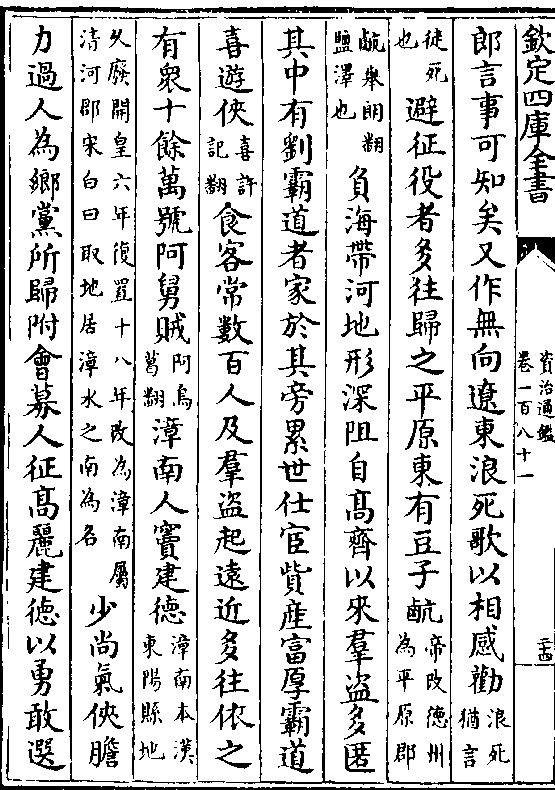 欽定四庫全書
資治通鑑
卷一百八十一
二十四
郎言事可知矣又作無向遼東浪死歌以相感勸浪死猶言
徒死也避征役者多往歸之平原東有豆子䴚帝改德州為平原郡
䴚舉朗翻鹽澤也負海帶河地形深阻自髙齊以來羣盜多匿
其中有劉霸道者家於其旁累世仕宦貲産富厚霸道
喜遊俠喜許記翻食客常數百人及羣盜起遠近多往依之
有衆十餘萬號阿舅賊阿烏葛翻漳南人竇建德漳南本漢東陽縣地
久廢開皇六年復置十八年改為漳南屬清河郡宋白曰取地居漳水之南為名少尚氣俠膽
力過人為鄉黨所歸附會募人征髙麗建德以勇敢選